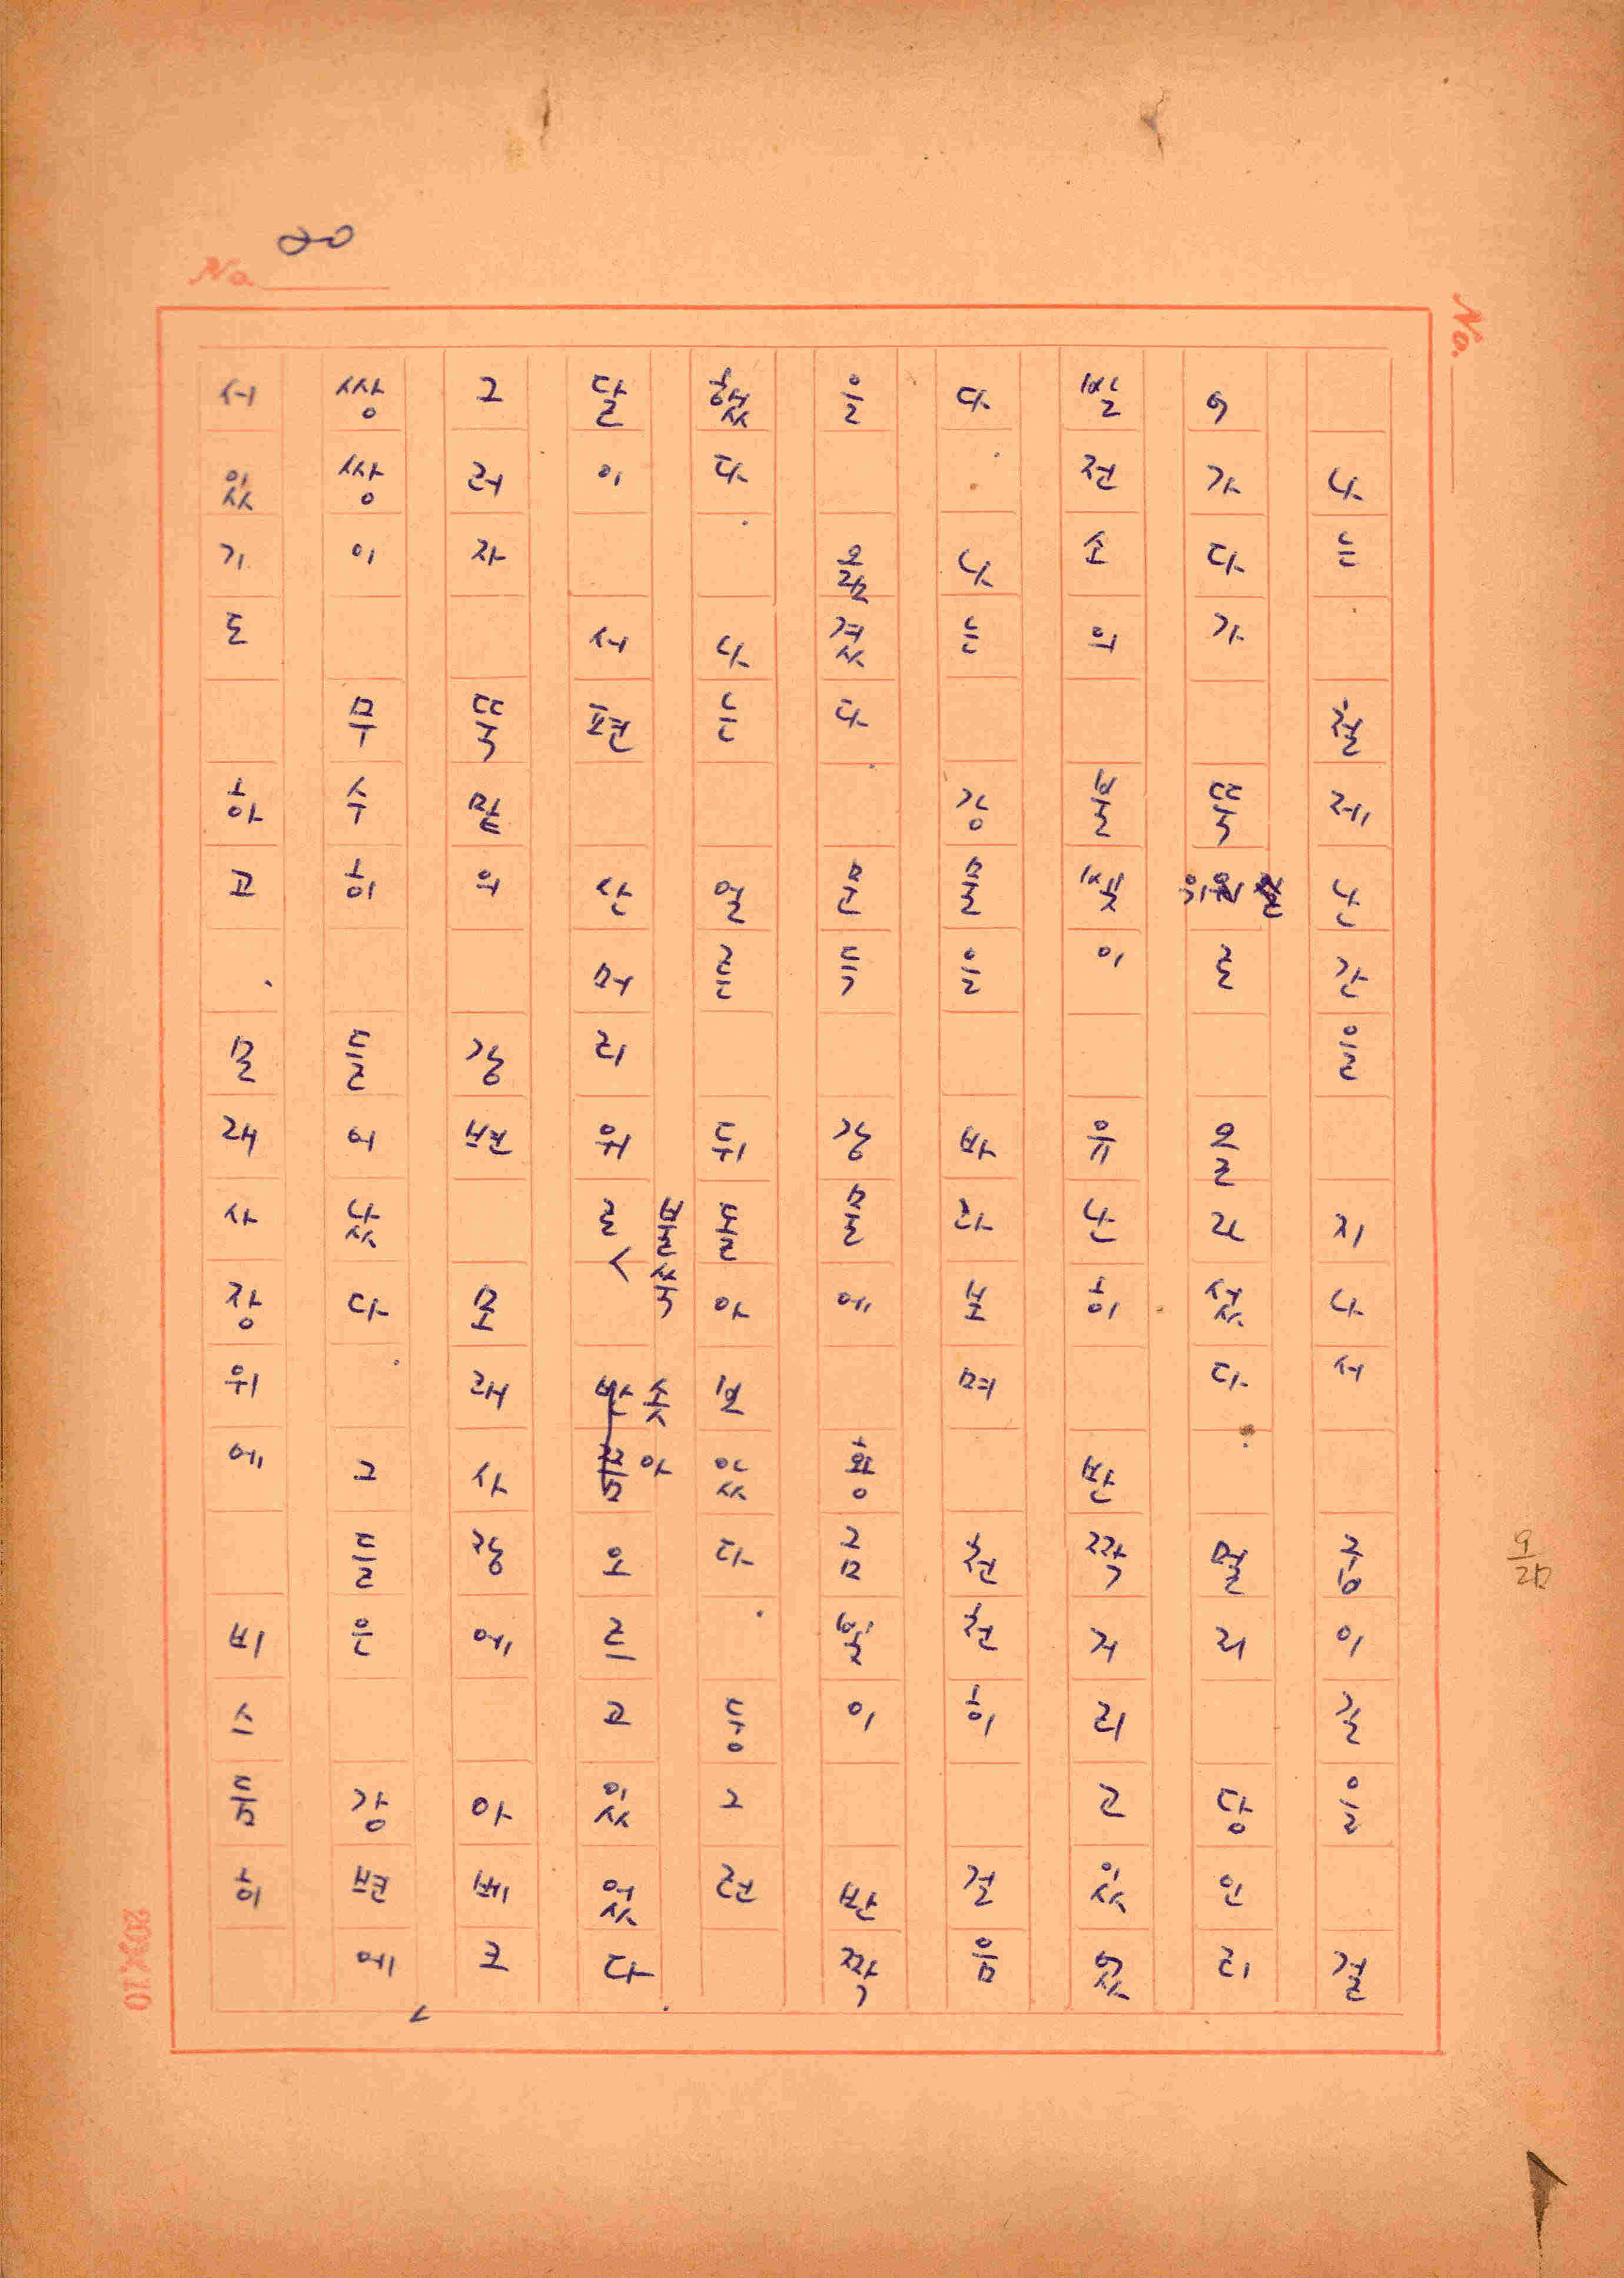 No. 20
No.
나는 철제난간을 지나서 걸
어가다가 뚝위로 올라섰다. 멀리 당인리
발전소의 불빛이 유난히 반짝거리고있었
다. 나는 강물을 바라보며 천천히 걸음
을 옮겼다. 문득 강물에 황금빛이 반짝
했다. 나는 얼른 뒤돌아보았다. 둥그런
달이 서편 산머리위로 불쑥 솟아오르고있었다.
그러자 뚝밑의 강변 모래사장에 아베크
쌍쌍이 무수히 들어났다. 그들은 강변에
서있기도 하고, 모래사장위에 비스듬히
20X10